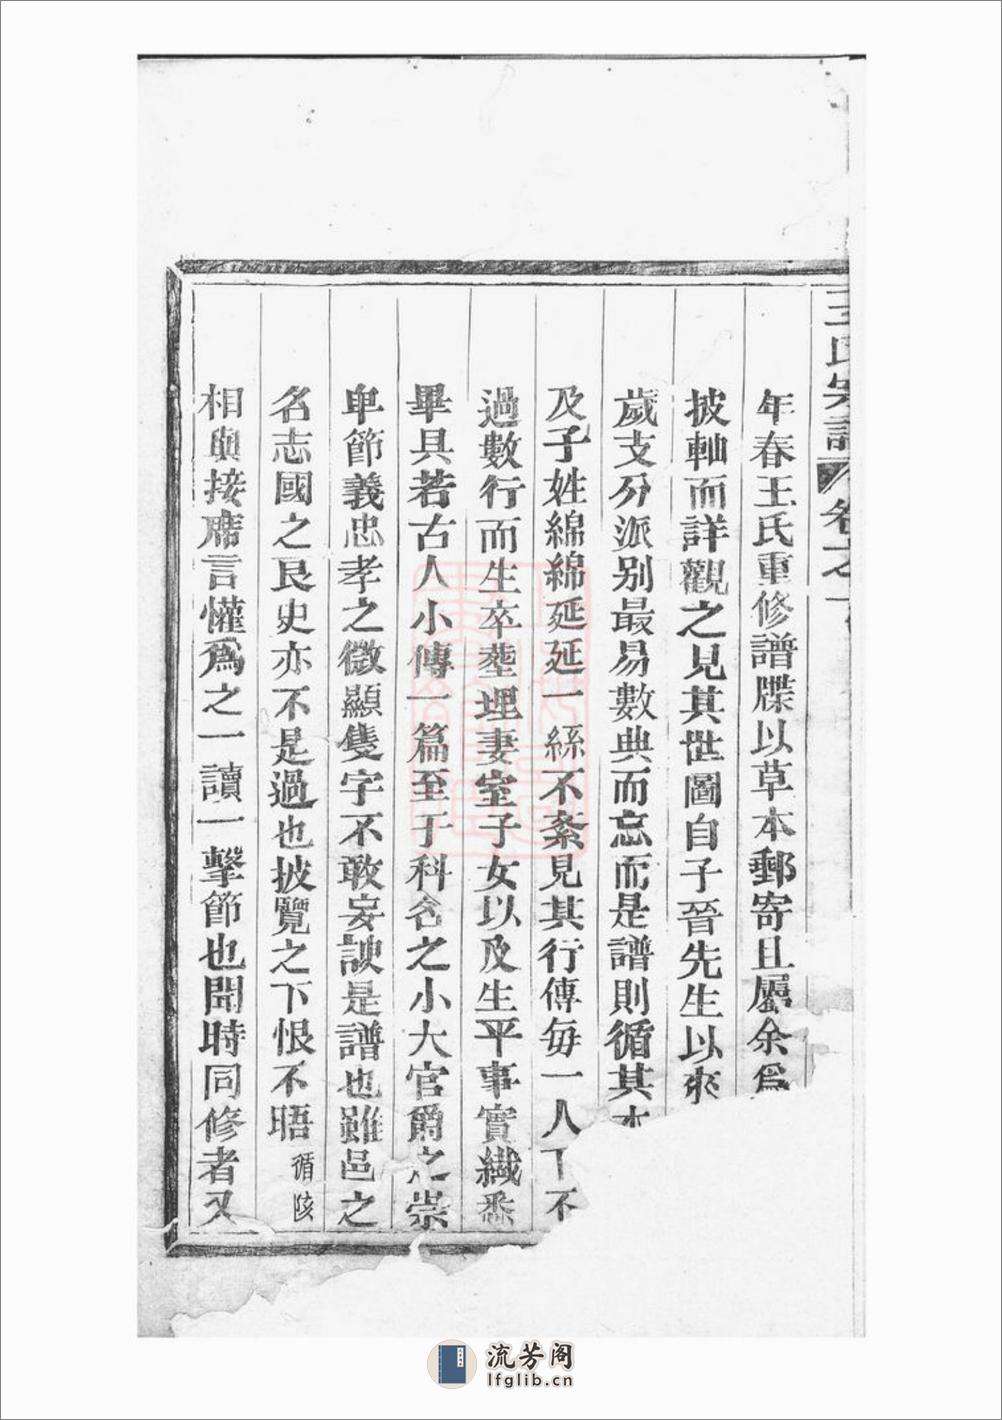 王氏宗譜 卷之一
年春王氏重修譜牒以草本郵寄且屬余爲
披軸而詳觀之見其世圖自子晉先生以來
歲支分派别最易數典而忘而是譜則循其
及子姓綿綿延延一絲不紊見其行傳每一人下不
過數行而生卒塟埋妻室子女以及生平事實纎悉
畢具若古人小傳一篇至于科名之小大官爵之崇
卑節義忠孝之微顯隻字不敢妄諛是譜也雖邑之
名志國之良史亦不是過也披覽之下恨不晤循陔
相與接席言懽爲之一讀一擊節也聞時同修者又
流芳阁
lfglib.cn